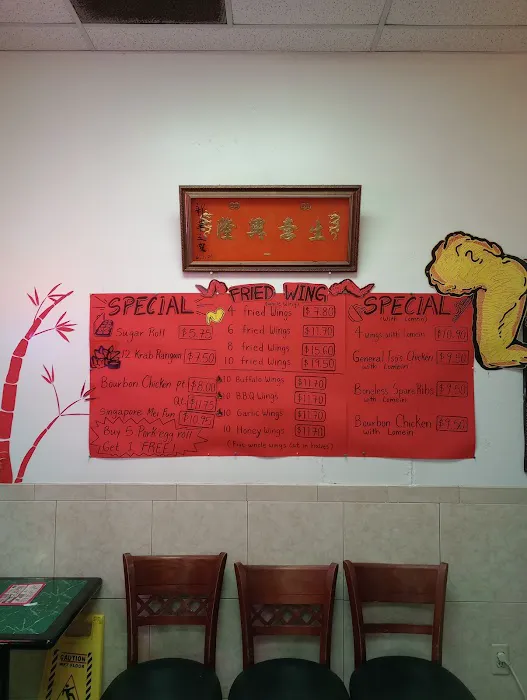 生意興隆
SPECIAL
Sugar Roll $5.75
12 Krab Rangoon $7.50
Bourbon Chicken pt $8.00
qt $11.75
Singapore Mei Fun $10.95
Buy 5 Pork egg roll
Get 1 FREE!
FRIED WING
4 Fried Wings $7.80
6 Fried Wings $11.70
8 Fried Wings $15.60
10 Fried Wings $19.50
10 Buffalo Wings $11.70
10 BBQ Wings $11.70
10 Garlic Wings $11.70
10 Honey Wings $11.70
whole wings cut in halves)
SPECIAL
(with Lomein)
4 wings with Lomein $10.90
General Tso's Chicken
with Lomein
Boneless Spare Ribs
with Lomein
Bourbon Chicken $9.50
with Lomein
CAUTION